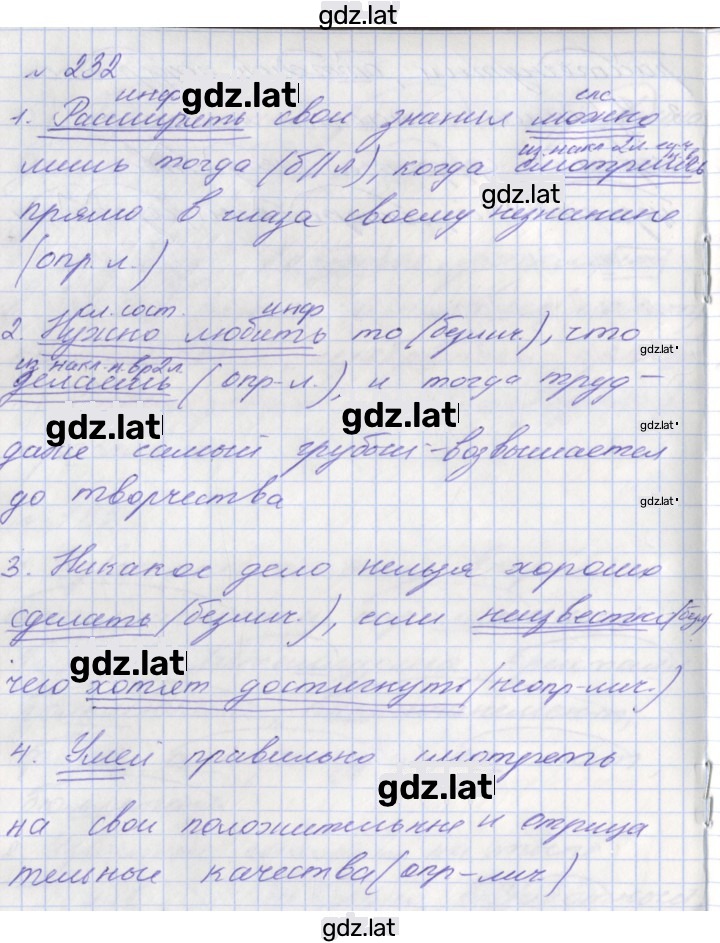 gdz.lat
№ 232
инф gdz.lat спс
1. Расширять свои знания можно
из. накл. 2 л. ед.ч.
лишь тогда (б/л), когда смотришь
gdz.lat
прямо в глаза своему незнанию
(опр. л.)
сл. сост. инф
2. Нужно любить то (безлич.), что
gdz.lat
из. накл. н. вр 2 л.
делаешь (опр-л.), и тогда труд -
gdz.lat gdz.lat gdz.lat
даже самый грубый - возвышается
до творчества gdz.lat
3. Никакое дело нельзя хорошо
сделать (безлич.), если неизвестно (безл
gdz.lat
чего хотят достигнуть (неопр-лич.)
4. Умей правильно смотреть
gdz.lat
на свои положительные и отрица
тельные качества (опр-лич.)
gdz.lat